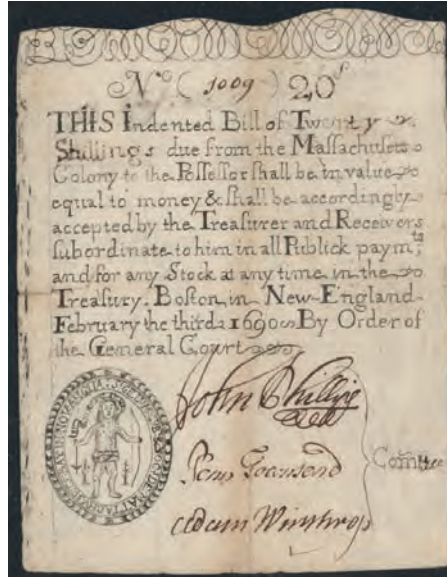 No ( 1009 ) 20s
THIS Indented Bill of Twenty
Shillings due from the Maſſachuſets
Colony to the Poſſeſſor ſhall be in value
equal to money & ſhall be accordingly
accepted by the Treaſurer and Receivers
ſubordinate to him in all Publick paymts.
and for any Stock at any time in the
Treaſury. Boſton, in New-England
February the third. 1690. By Order of
the General Court
John Phillips
Penn Townsend
Adam Winthrop
Comttee